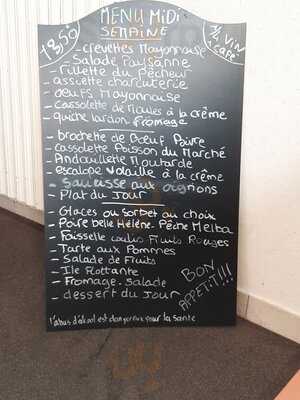 MENU MIDI
SEMAINE
13,50
¼ VIN
CAFÉ
- crevettes Mayonnaise
- Salade Paysanne
- rillette du Pêcheur
- assiette charcuterie
- oeufs Mayonnaise
- cassolette de moules à la crème
- quiche lardon fromage
- brochette de Boeuf Poivre
- cassolette Poisson du Marché
- Andouillette Moutarde
- escalope volaille à la crème
- Saucisse aux oignons
- Plat du Jour
- Glaces ou Sorbet au choix
- Poire belle Hélène - Pêche Melba
- Faisselle coulis Fruits Rouges
- Tarte aux Pommes
- Salade de Fruits
- Ile Flottante
- Fromage - Salade
- dessert du Jour
BON
APPETIT!!!
l'abus d'alcool est dangereux pour la santé